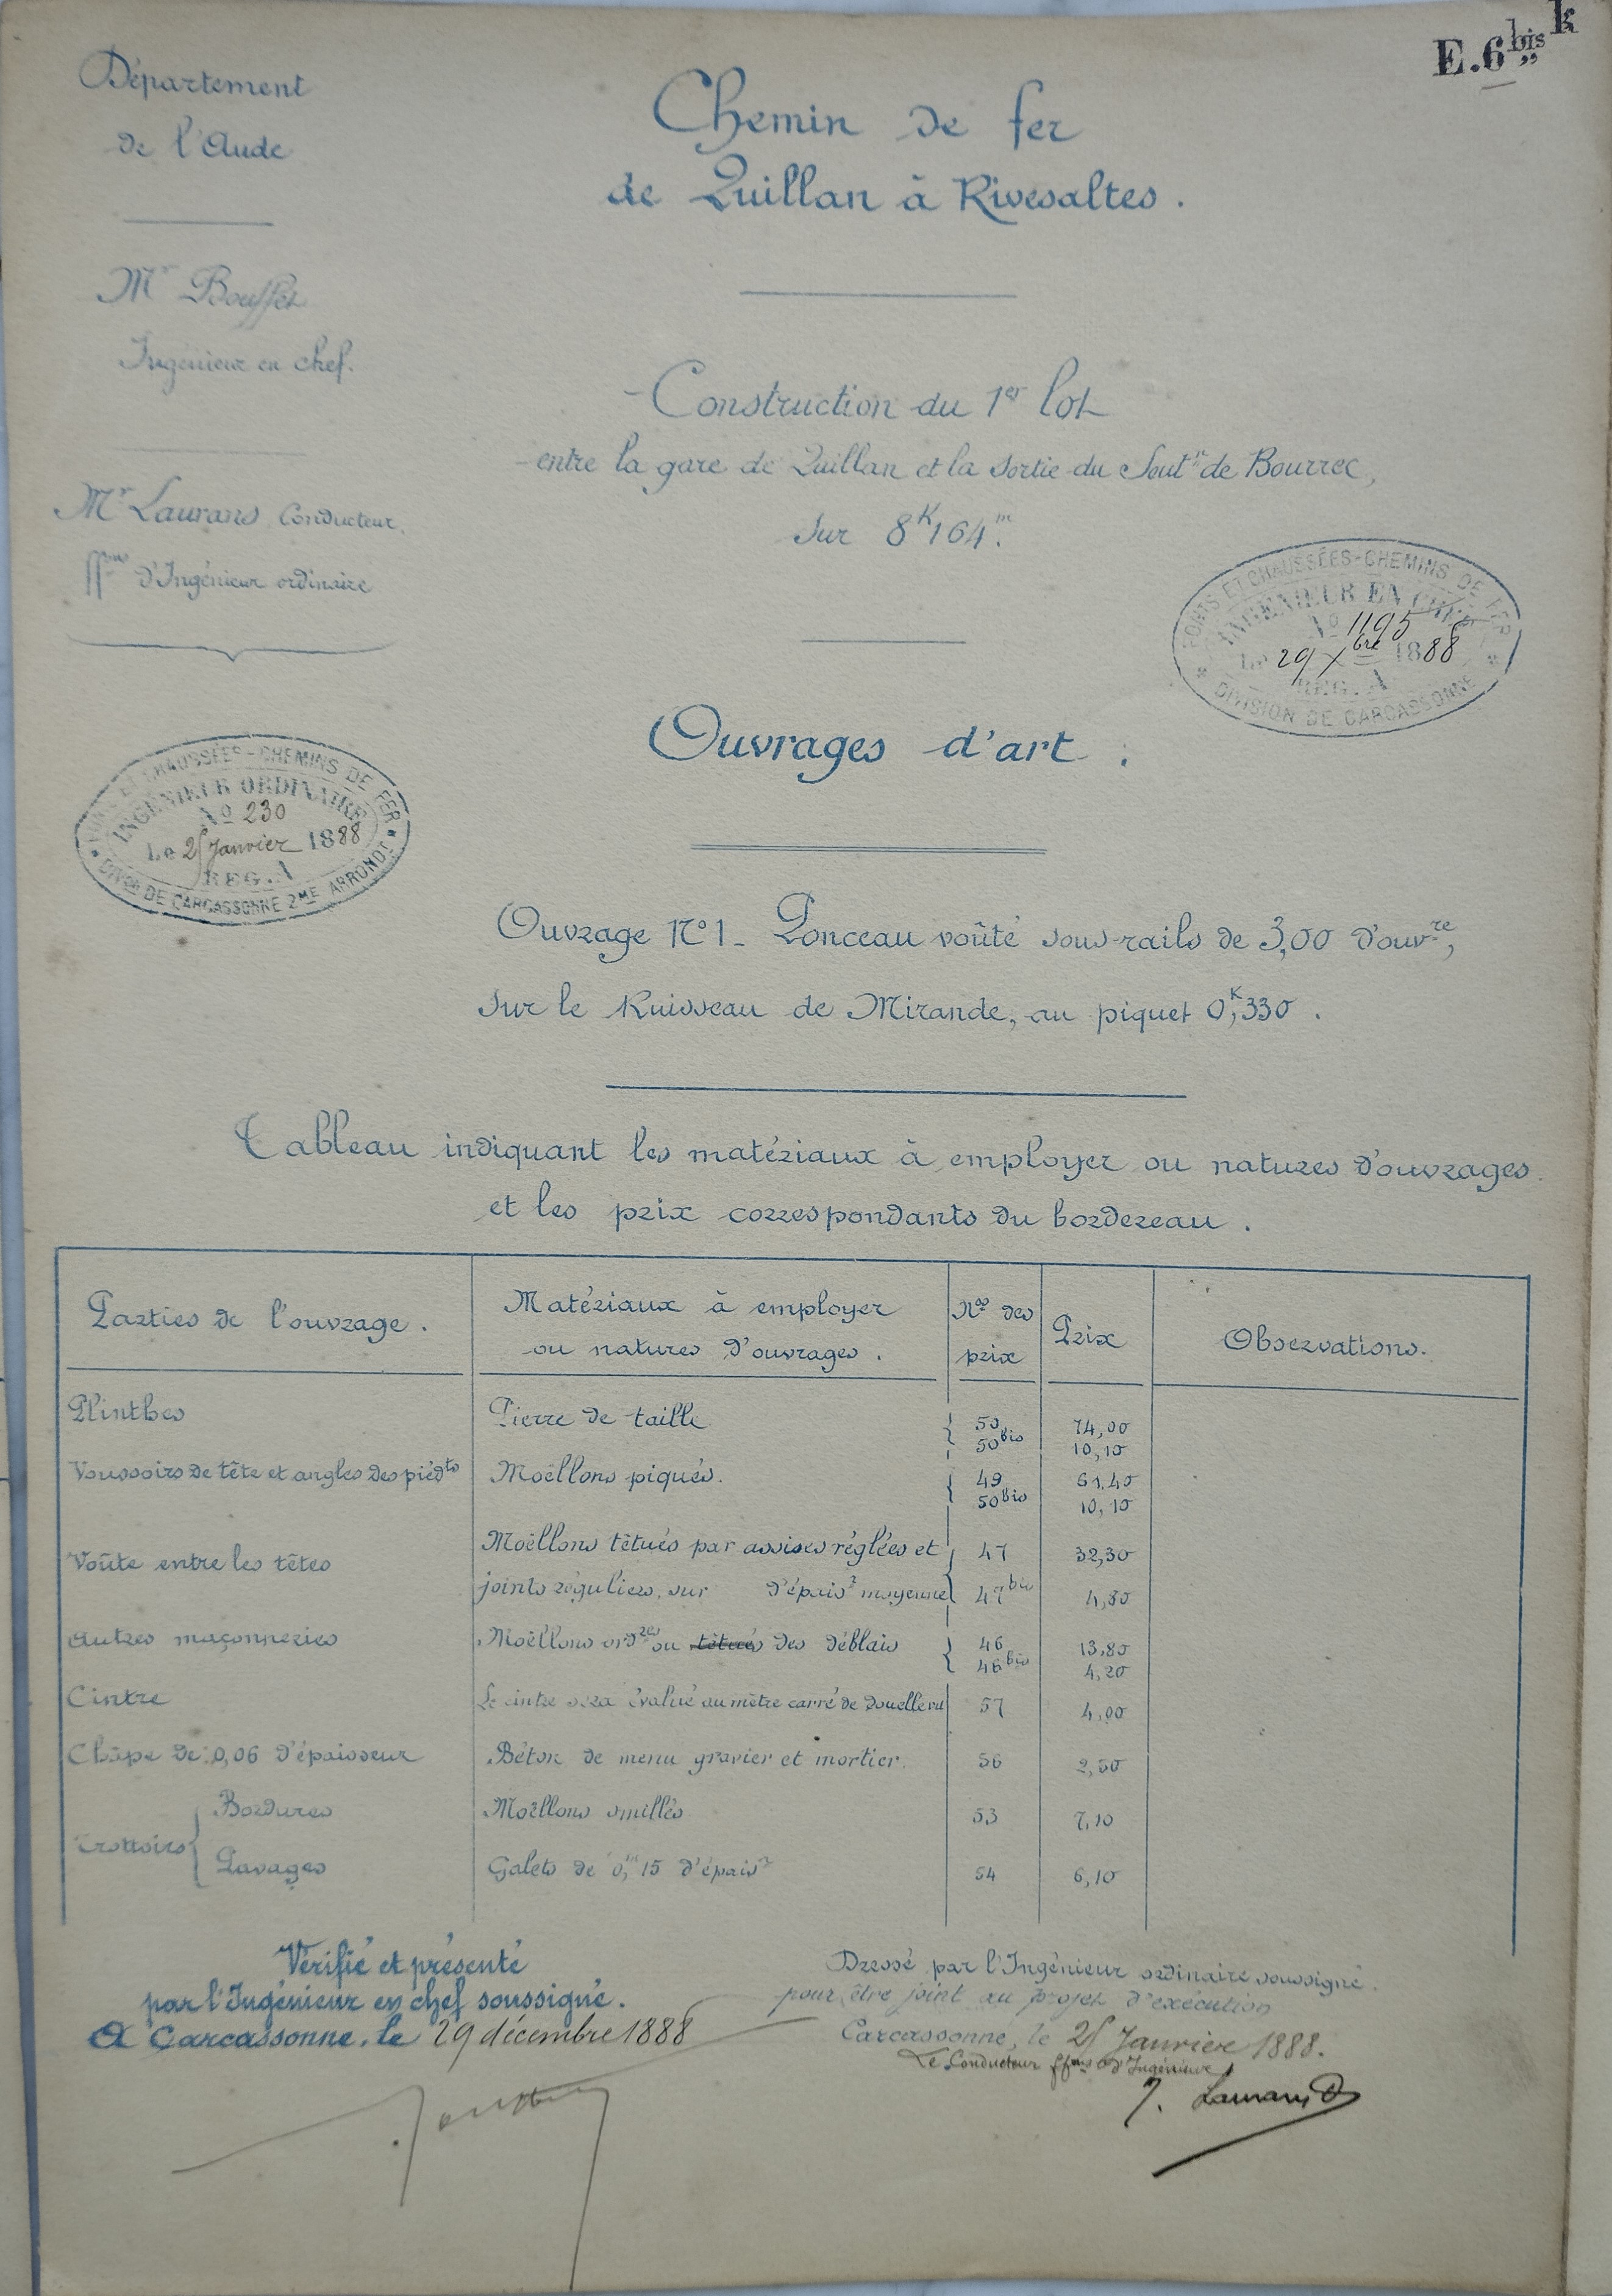 E.6 bis k
Département
de l'Aude
Chemin de fer
de Quillan à Rivesaltes.
Mr Bouffet
Ingénieur en chef.
Construction du 1er lot
entre la gare de Quillan et la sortie du Soutn de Bourrec,
sur 8K164m.
Mr Laurans, Conducteur,
ffons d'Ingénieur ordinaire
PONTS ET CHAUSSÉES-CHEMINS DE FER
INGÉNIEUR EN CHEF
No 1195
Le 29 Xbre 1888
REG. A
DIVISION DE CARCASSONNE
Ouvrages d'art.
PONTS ET CHAUSSÉES-CHEMINS DE FER
INGÉNIEUR ORDINAIRE
No 230
Le 25 Janvier 1888
REG. A
DIVon DE CARCASSONNE 2ME ARRONDT
Ouvrage No 1 - Ponceau voûté sous-rails de 3,00 d'ouvre,
sur le Ruisseau de Mirande, au piquet 0K,330.
Tableau indiquant les matériaux à employer ou natures d'ouvrages
et les prix correspondants du bordereau.
Parties de l'ouvrage.
Matériaux à employer
ou natures d'ouvrages.
Nos des
prix
Prix
Observations.
Plinthes Pierre de taille { 50 74,00
50 bis 10,10
Voussoirs de tête et angles des piédts Moëllons piqués. { 49 61,40
50 bis 10,10
Voûte entre les têtes Moëllons têtués par assises réglées et { 47 32,30
joints réguliers, sur d'épaisr moyenne 47 bis 4,80
Autres maçonneries Moëllons ordres ou têtués des déblais { 46 13,80
46 bis 4,20
Cintre Le cintre sera évalué au mètre carré de douelle vu 57 4,00
Châpe de 0,06 d'épaisseur Béton de menu gravier et mortier. 56 2,50
Trottoirs { Bordures Moëllons smillés 53 7,10
Pavages Galets de 0,m15 d'épaisr 54 6,10
Vérifié et présenté
par l'Ingénieur en chef soussigné.
A Carcassonne, le 29 décembre 1888
Dressé par l'Ingénieur ordinaire soussigné.
pour être joint au projet d'exécution
Carcassonne, le 25 Janvier 1888.
Le Conducteur ffons d'Ingénieur
J. Laurans